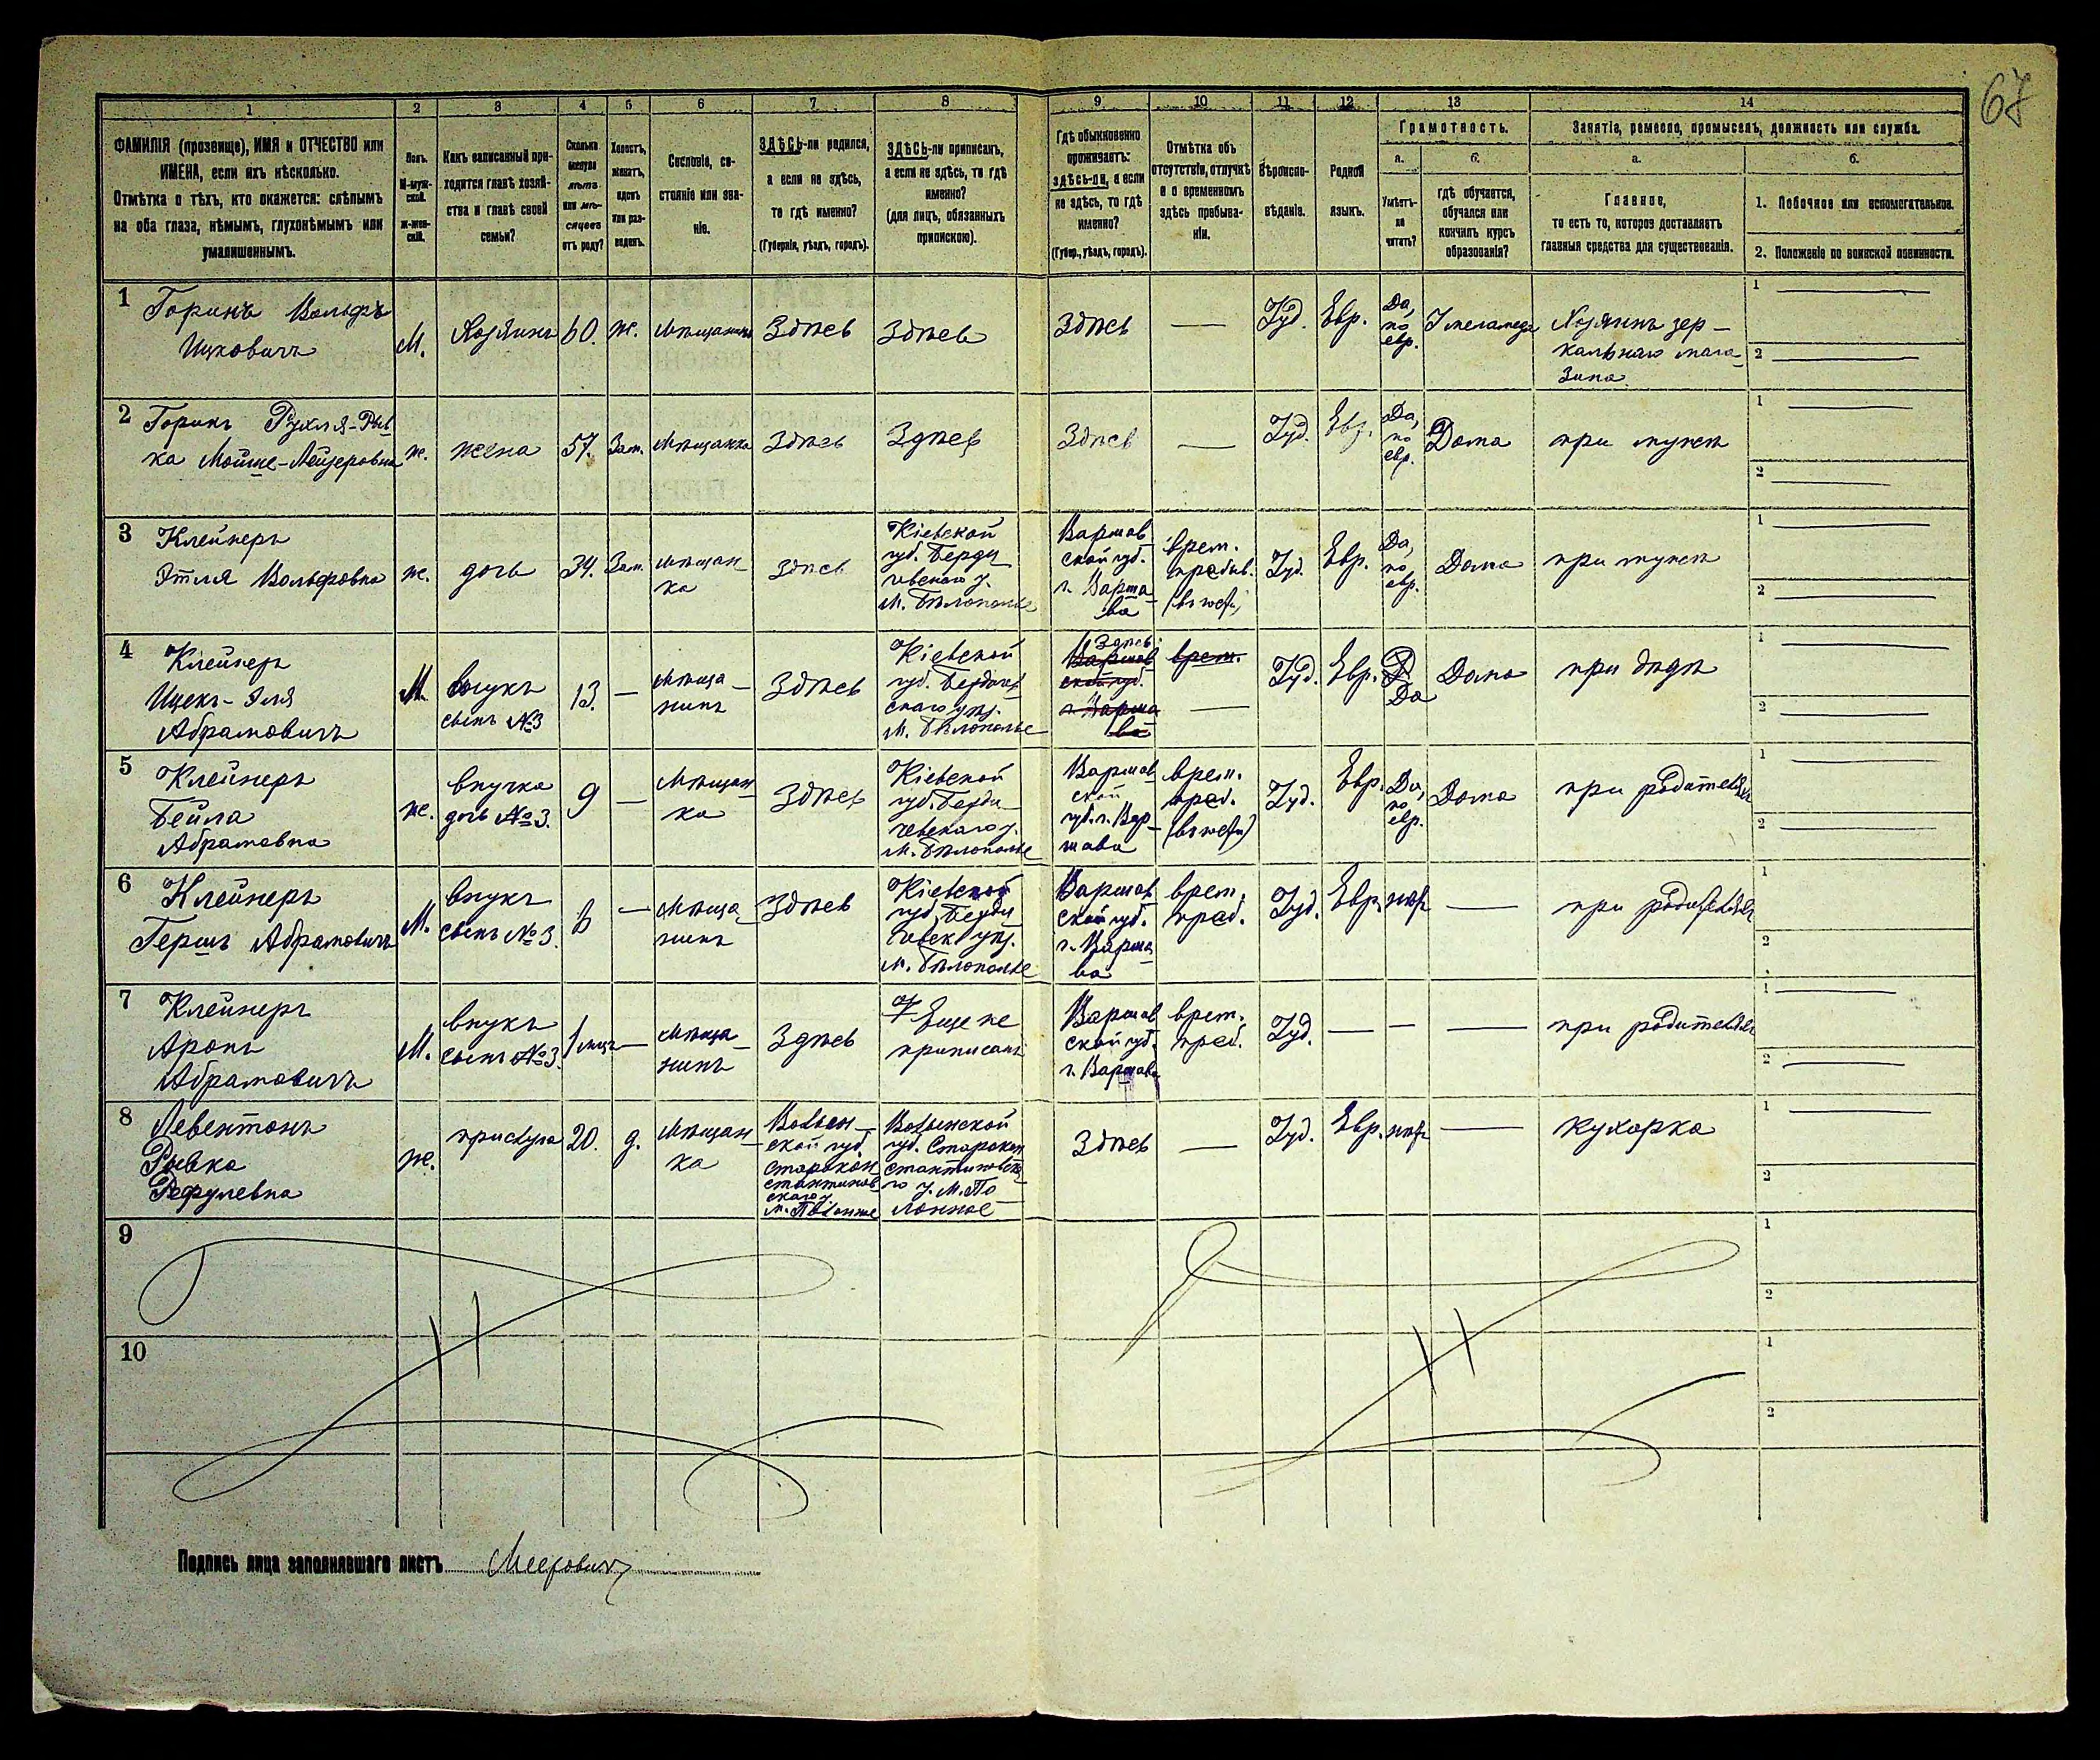 67
1 2 3 4 5 6 7 8 9 10 11 12 13 14
ФАМИЛІЯ (прозвище), ИМЯ и ОТЧЕСТВО или
ИМЕНА, если ихъ нѣсколько.
Отмѣтка о тѣхъ, кто окажется: слѣпымъ
на оба глаза, нѣмымъ, глухонѣмымъ или
умалишеннымъ.
Полъ.
М-муж-
ской.
Ж-жен-
скій.
Какъ записанный при-
ходится главѣ хозяй-
ства и главѣ своей
семьи?
Сколько
минуло
лѣтъ
или мѣ-
сяцевъ
отъ роду?
Холостъ,
женатъ,
вдовъ
или раз-
веденъ.
Сословіе, со-
стояніе или зва-
ніе.
ЗДѢСЬ-ли родился,
а если не здѣсь,
то гдѣ именно?
(Губернія, уѣздъ, городъ).
ЗДѢСЬ-ли приписанъ,
а если не здѣсь, то гдѣ
именно?
(для лицъ, обязанныхъ
припискою).
Гдѣ обыкновенно
проживаетъ:
здѣсь-ли, а если
не здѣсь, то гдѣ
именно?
(Губер., уѣздъ, городъ).
Отмѣтка объ
отсутствіи, отлучкѣ
и о временномъ
здѣсь пребыва-
ніи.
Вѣроиспо-
вѣданіе.
Родной
языкъ.
Грамотность.
а.
Умѣетъ-
ли
читать?
б.
гдѣ обучается,
обучался или
кончилъ курсъ
образованія?
Занятіе, ремесло, промыселъ, должность или служба.
а.
Главное,
то есть то, которое доставляетъ
главныя средства для существованія.
б.
1. Побочное или вспомогательное.
2. Положеніе по воинской повинности.
1
Горинъ Вольфъ
Ицковичъ
М.
Хозяинъ
60.
ж.
Мѣщанинъ
Здѣсь
Здѣсь
Здѣсь
—
Іуд.
Евр.
Да,
по
евр.
У меламеда
Хозяинъ зер-
кальнаго мага-
зина.
1 —
2 —
2
Горинъ Рухля-Рыв
ка Мойше-Лейзеровна
ж.
жена
57.
Зам.
Мѣщанка
Здѣсь
Здѣсь
Здѣсь
—
Іуд.
Евр.
Да,
по
евр.
Дома
при мужѣ
1 —
2 —
3
Клейнеръ
Этля Вольфовна
ж.
дочь
34.
Зам.
Мѣщан-
ка
Здѣсь
Кіевской
губ. Берди
чевскаго у.
м. Бѣлополье
Варшав
ской губ.
г. Варша-
ва
врем.
пребыв.
Іуд.
Евр.
Да,
по
евр.
Дома
при мужѣ
1 —
2 —
4
Клейнеръ
Ицекъ-Эля
Абрамовичъ
М.
внукъ
сынъ №3
13.
—
Мѣща-
нинъ
Здѣсь
Кіевской
губ. Бердичев
скаго уѣз.
м. Бѣлополье
Здѣсь
Варшав
ской губ.
г. Варша
ва
врем.
—
Іуд.
Евр.
Да
Дома
при дѣдѣ
1 —
2 —
5
Клейнеръ
Бейла
Абрамовна
ж.
внучка
дочь №3.
9
—
Мѣщан
ка
Здѣсь
Кіевской
губ. Берди-
чевскаго у.
м. Бѣлополье
Варшав-
ской
губ. г. Вар-
шава
врем.
преб.
Іуд.
Евр.
Да,
по
евр.
Дома
при родителяхъ
1 —
2 —
6
Клейнеръ
Гершъ Абрамовичъ
М.
внукъ
сынъ №3.
6
—
Мѣща-
нинъ
Здѣсь
Кіевской
губ. Берди
чевск. уѣз.
м. Бѣлополье
Варшав
ской губ.
г. Варша-
ва
врем.
преб.
Іуд.
Евр.
нѣтъ
—
при родителяхъ
1
2
7
Клейнеръ
Аронъ
Абрамовичъ
М.
внукъ
сынъ №3.
1 мѣс.
—
Мѣща-
нинъ
Здѣсь
Еще не
приписанъ
Варшав
ской губ.
г. Варшава
врем.
преб.
Іуд.
—
—
—
при родителяхъ
1 —
2 —
8
Левентонъ
Рывка
Рефулевна
ж.
прислуга
20.
д.
Мѣщан-
ка
Волын-
ской губ.
Старокон
стантинов-
скаго у.
м. Полонное
Волынской
губ. Старокон
стантиновска-
го у. м. По-
лонное
Здѣсь
—
Іуд.
Евр.
нѣтъ
—
кухарка
1 —
2
9
1
2
10
1
2
Подпись лица заполнявшаго листъ Меерович